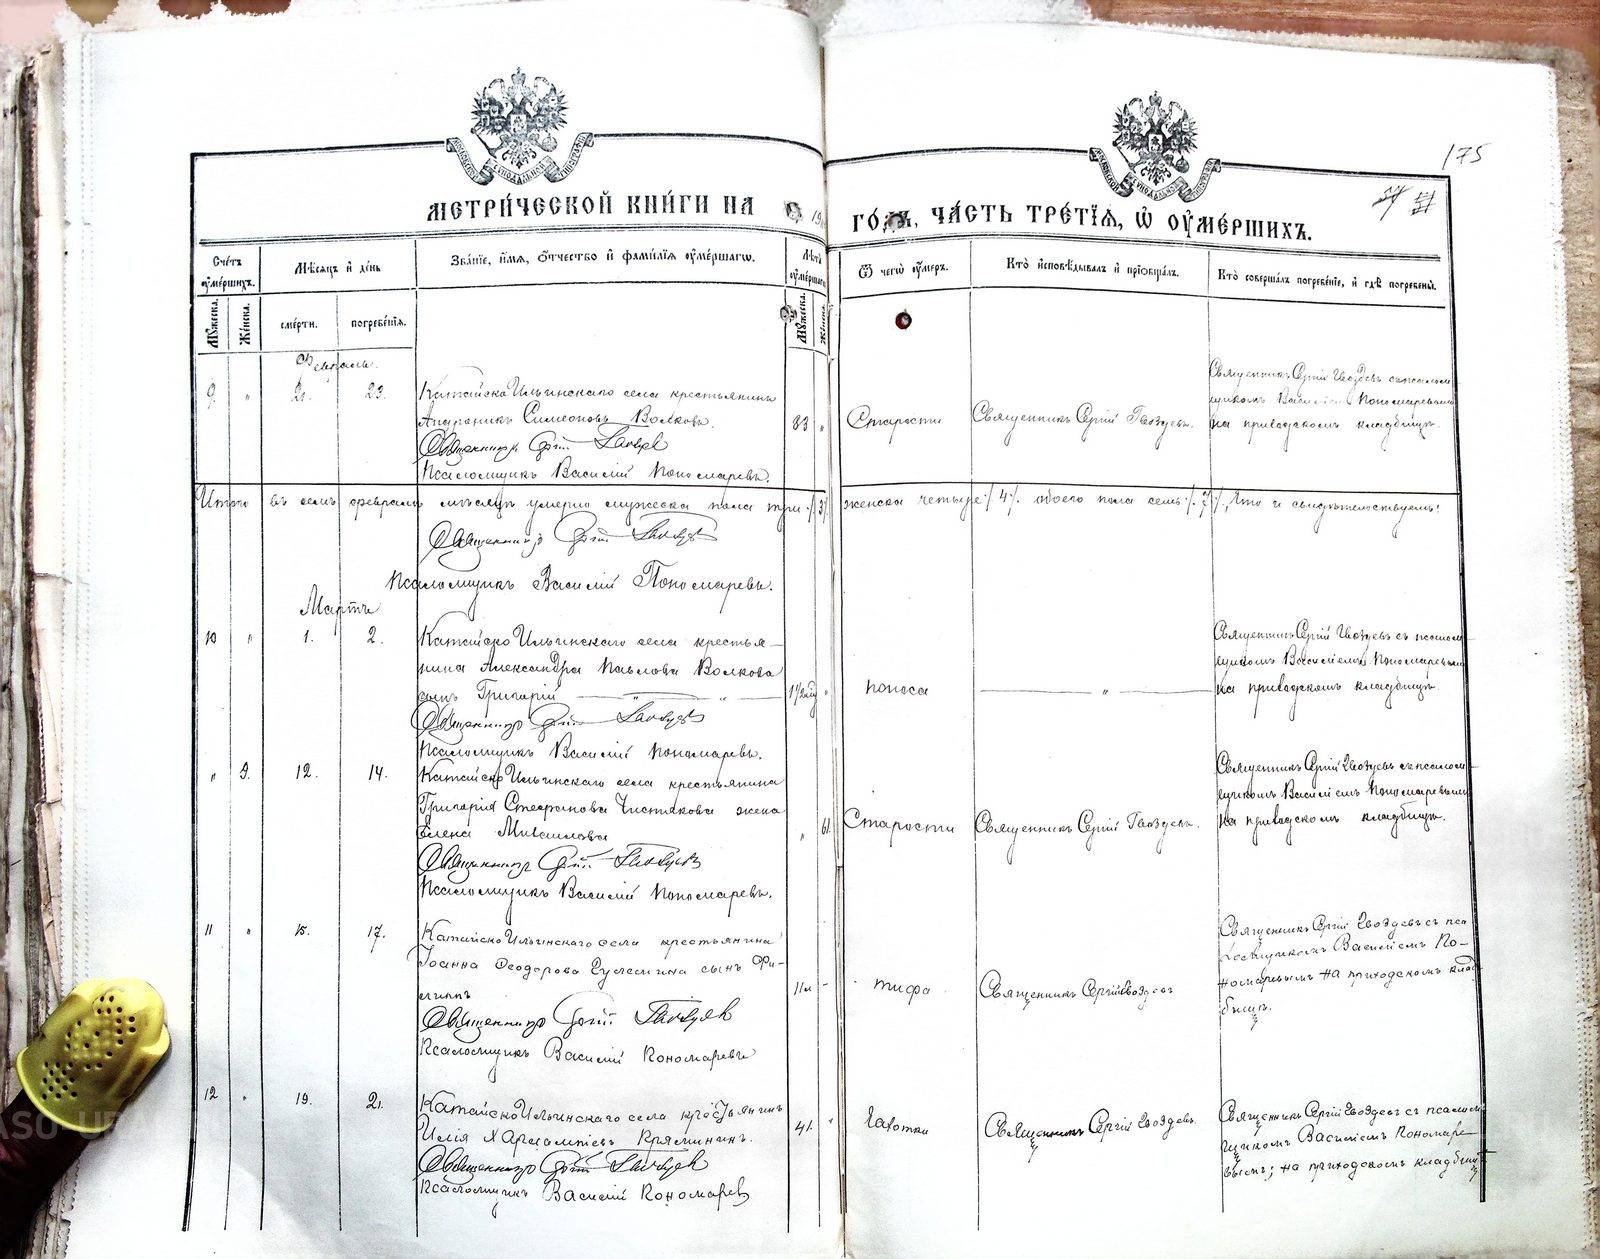 175
МЕТРИ́ЧЕСКОЙ КНИ́ГИ НА 19
ГО́ДЪ, ЧА́СТЬ ТРЕ́ТІѦ, Ѡ҆ ОУ҆МЕ́РШИХЪ.
Сче́тъ оу҆ме́ршихъ.
Мѣ́сѧцъ и҆ де́нь
Зва́нїе, и҆́мѧ, ѻ҆́тчество и҆ фами́лїѧ оу҆ме́ршагѡ.
Лѣ́тъ оу҆ме́ршагѡ
Ѿ чегѡ̀ оу҆́меръ.
Кто̀ и҆сповѣ́дывалъ и҆ прїѡбща́лъ.
Кто̀ соверша́лъ погребе́нїе, и҆ гдѣ̀ погребены̀.
Мꙋ́жеска.
Же́нска.
сме́рти.
погребе́нїѧ.
Мꙋ́жеска.
Же́нска.
Февраль.
9. " 21. 23. Катайско Ильинскаго села крестьянинъ
Андроникъ Симеоновъ Волковъ.
Священникъ Сергій Гвоздевъ
Псаломщикъ Василій Пономаревъ.
83 "
Старости
Священникъ Сергій Гвоздевъ.
Священникъ Сергій Гвоздевъ съ псалом
щикомъ Василіемъ Пономаревымъ
на приходскомъ кладбищѣ.
Итого въ семъ февралѣ мѣсяцѣ умерло мужеска пола три /3/ женска четыре /4/. обоего пола семь /7/, Что и свидѣтельствуемъ:
Священникъ Сергій Гвоздевъ
Псаломщикъ Василій Пономаревъ.
Мартъ
10 " 1. 2. Катайско Ильинскаго села крестья-
нина Александра Павлова Волкова
сынъ Григорій
Священникъ Сергій Гвоздевъ
Псаломщикъ Василій Пономаревъ.
поноса
"
Священникъ Сергій Гвоздевъ съ псалом
щикомъ Василіемъ Пономаревымъ
на приходскомъ кладбищѣ.
" 9. 12. 14. Катайско Ильинскаго села крестьянина
Григорія Стефанова Чистякова жена
Елена Михаилова
Священникъ Сергій Гвоздевъ
Псаломщикъ Василій Пономаревъ.
" 61.
Старости
Священникъ Сергій Гвоздевъ.
Священникъ Сергій Гвоздевъ съ псалом
щикомъ Василіемъ Пономаревымъ
на приходскомъ кладбищѣ.
11 " 15. 17. Катайско Ильинскаго села крестьянина
Іоанна Ѳеодорова сынъ Фи-
липпъ
Священникъ Сергій Гвоздевъ
Псаломщикъ Василій Пономаревъ
11 л
тифа
Священникъ Сергій Гвоздевъ
Священникъ Сергій Гвоздевъ съ пса
ломщикомъ Василіемъ По-
номаревымъ на приходскомъ клад
бищѣ.
12 " 19. 21. Катайско Ильинскаго села крестьянинъ
Илія Харлампіевъ Кряминкинъ.
Священникъ Сергій Гвоздевъ
Псаломщикъ Василій Пономаревъ
41. "
Чахотки
Священникъ Сергій Гвоздевъ
Священникъ Сергій Гвоздевъ съ псалом
щикомъ Василіемъ Пономаре
вымъ; на приходскомъ кладбищѣ